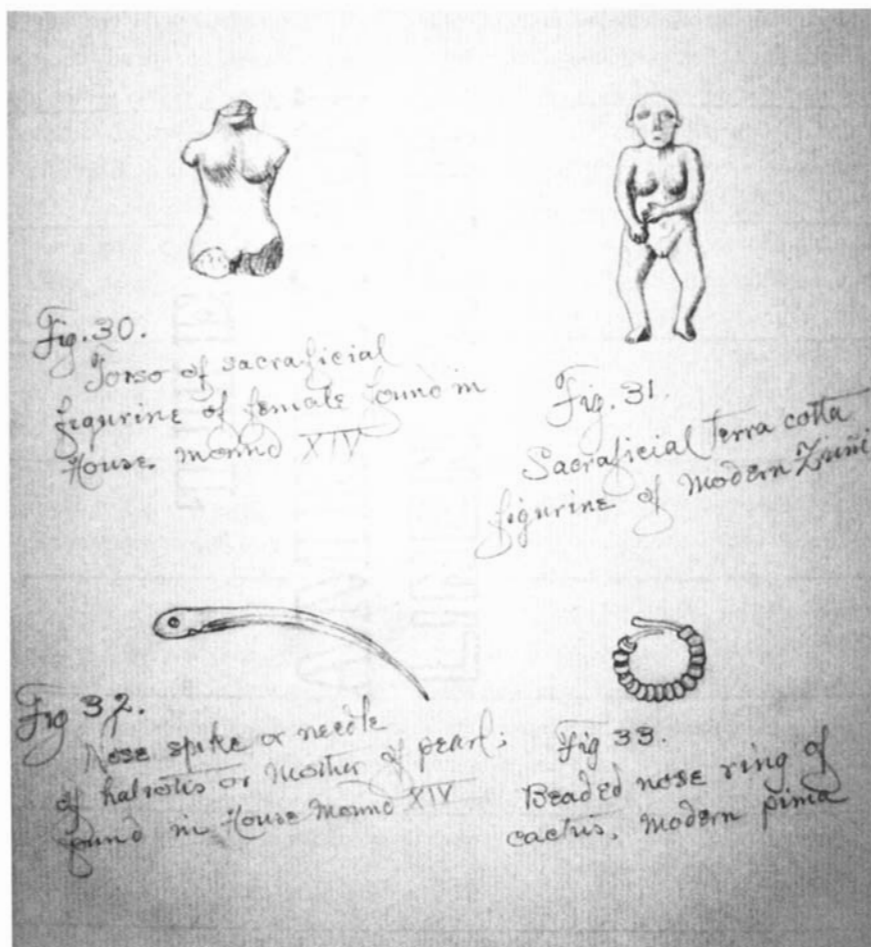 Fig. 30.
Torso of sacraficial
figurine of female found in
House Mound XIV
Fig. 31.
Sacraficial terra cotta
figurine of Modern Zuñi
Fig 32.
Nose spike or needle
of haliotis or Mother of pearl;
found in House Mound XIV
Fig 33.
Beaded nose ring of
cactus, Modern pima